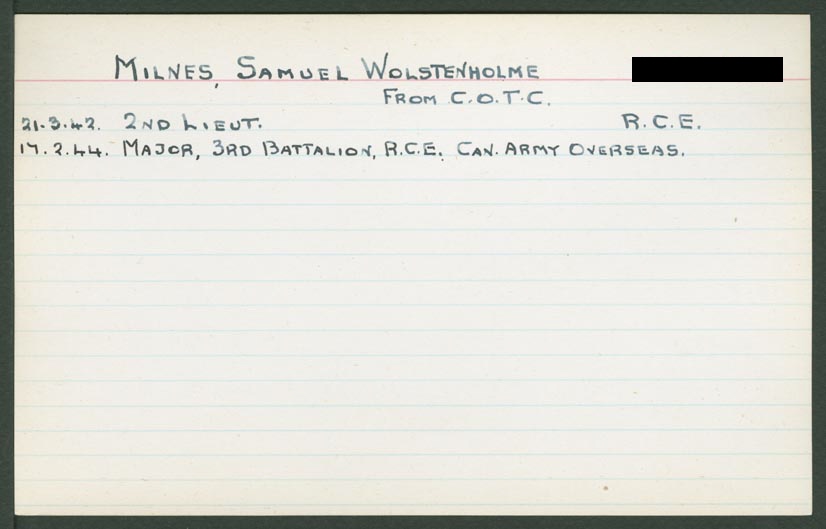 MILNES, SAMUEL WOLSTENHOLME
FROM C.O.T.C.
21.3.42. 2ND LIEUT. R.C.E.
17.2.44. MAJOR, 3RD BATTALION, R.C.E. CAN. ARMY OVERSEAS.